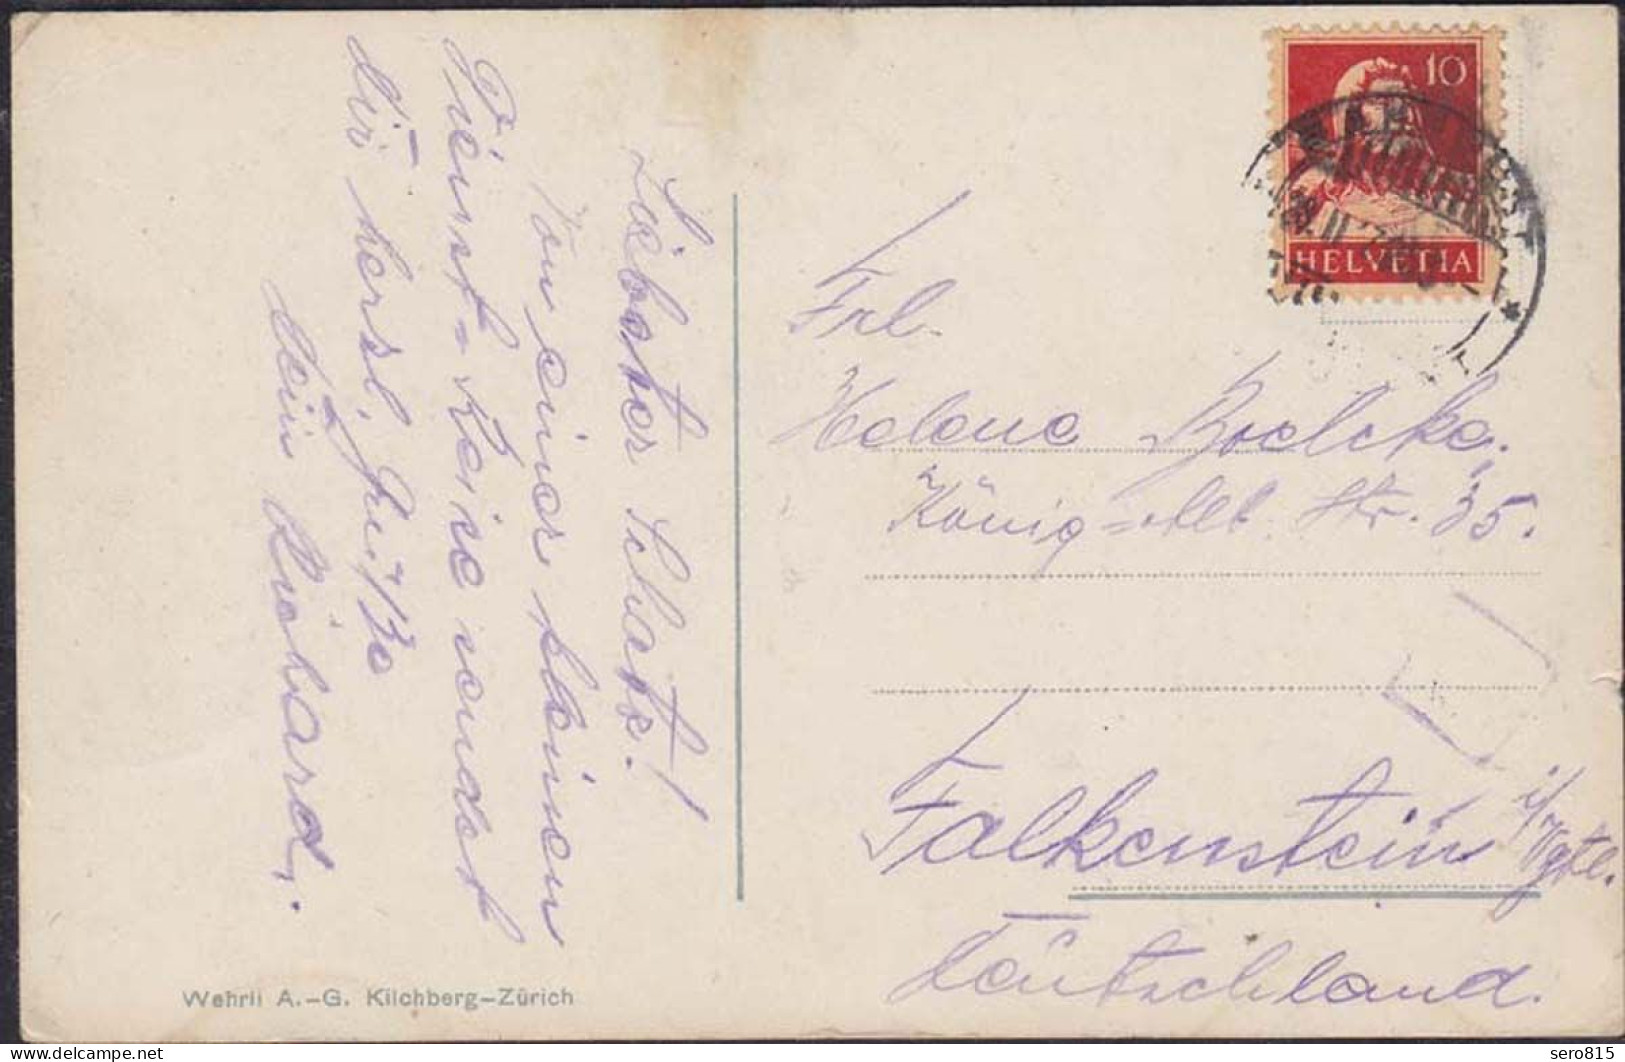 Liebster Schatz!
Von einer kleinen
Dienst-Reise sendet
dir herzl. Grüße
dein Richard.
10
HELVETIA
Frl.
Helene Boelcke.
König-Alb. Str. 35.
Falkenstein i/Vgtl.
Deutschland.
Wehrli A.-G. Kilchberg-Zürich
sero815